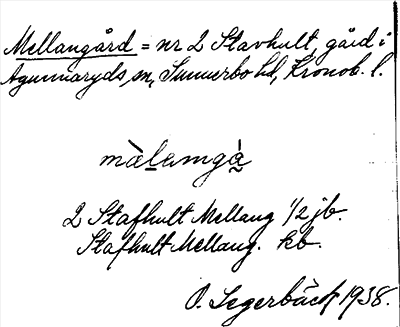 Mellangård = nr 2 Stavhult, gård i
Agunnaryds sn, Sunnerbo hd, Kronob. l.
màlamgà̰
2 Stafhult Mellang 1/2 jb.
Stafhult Mellang. kb.
O. Segerbäck 1938.